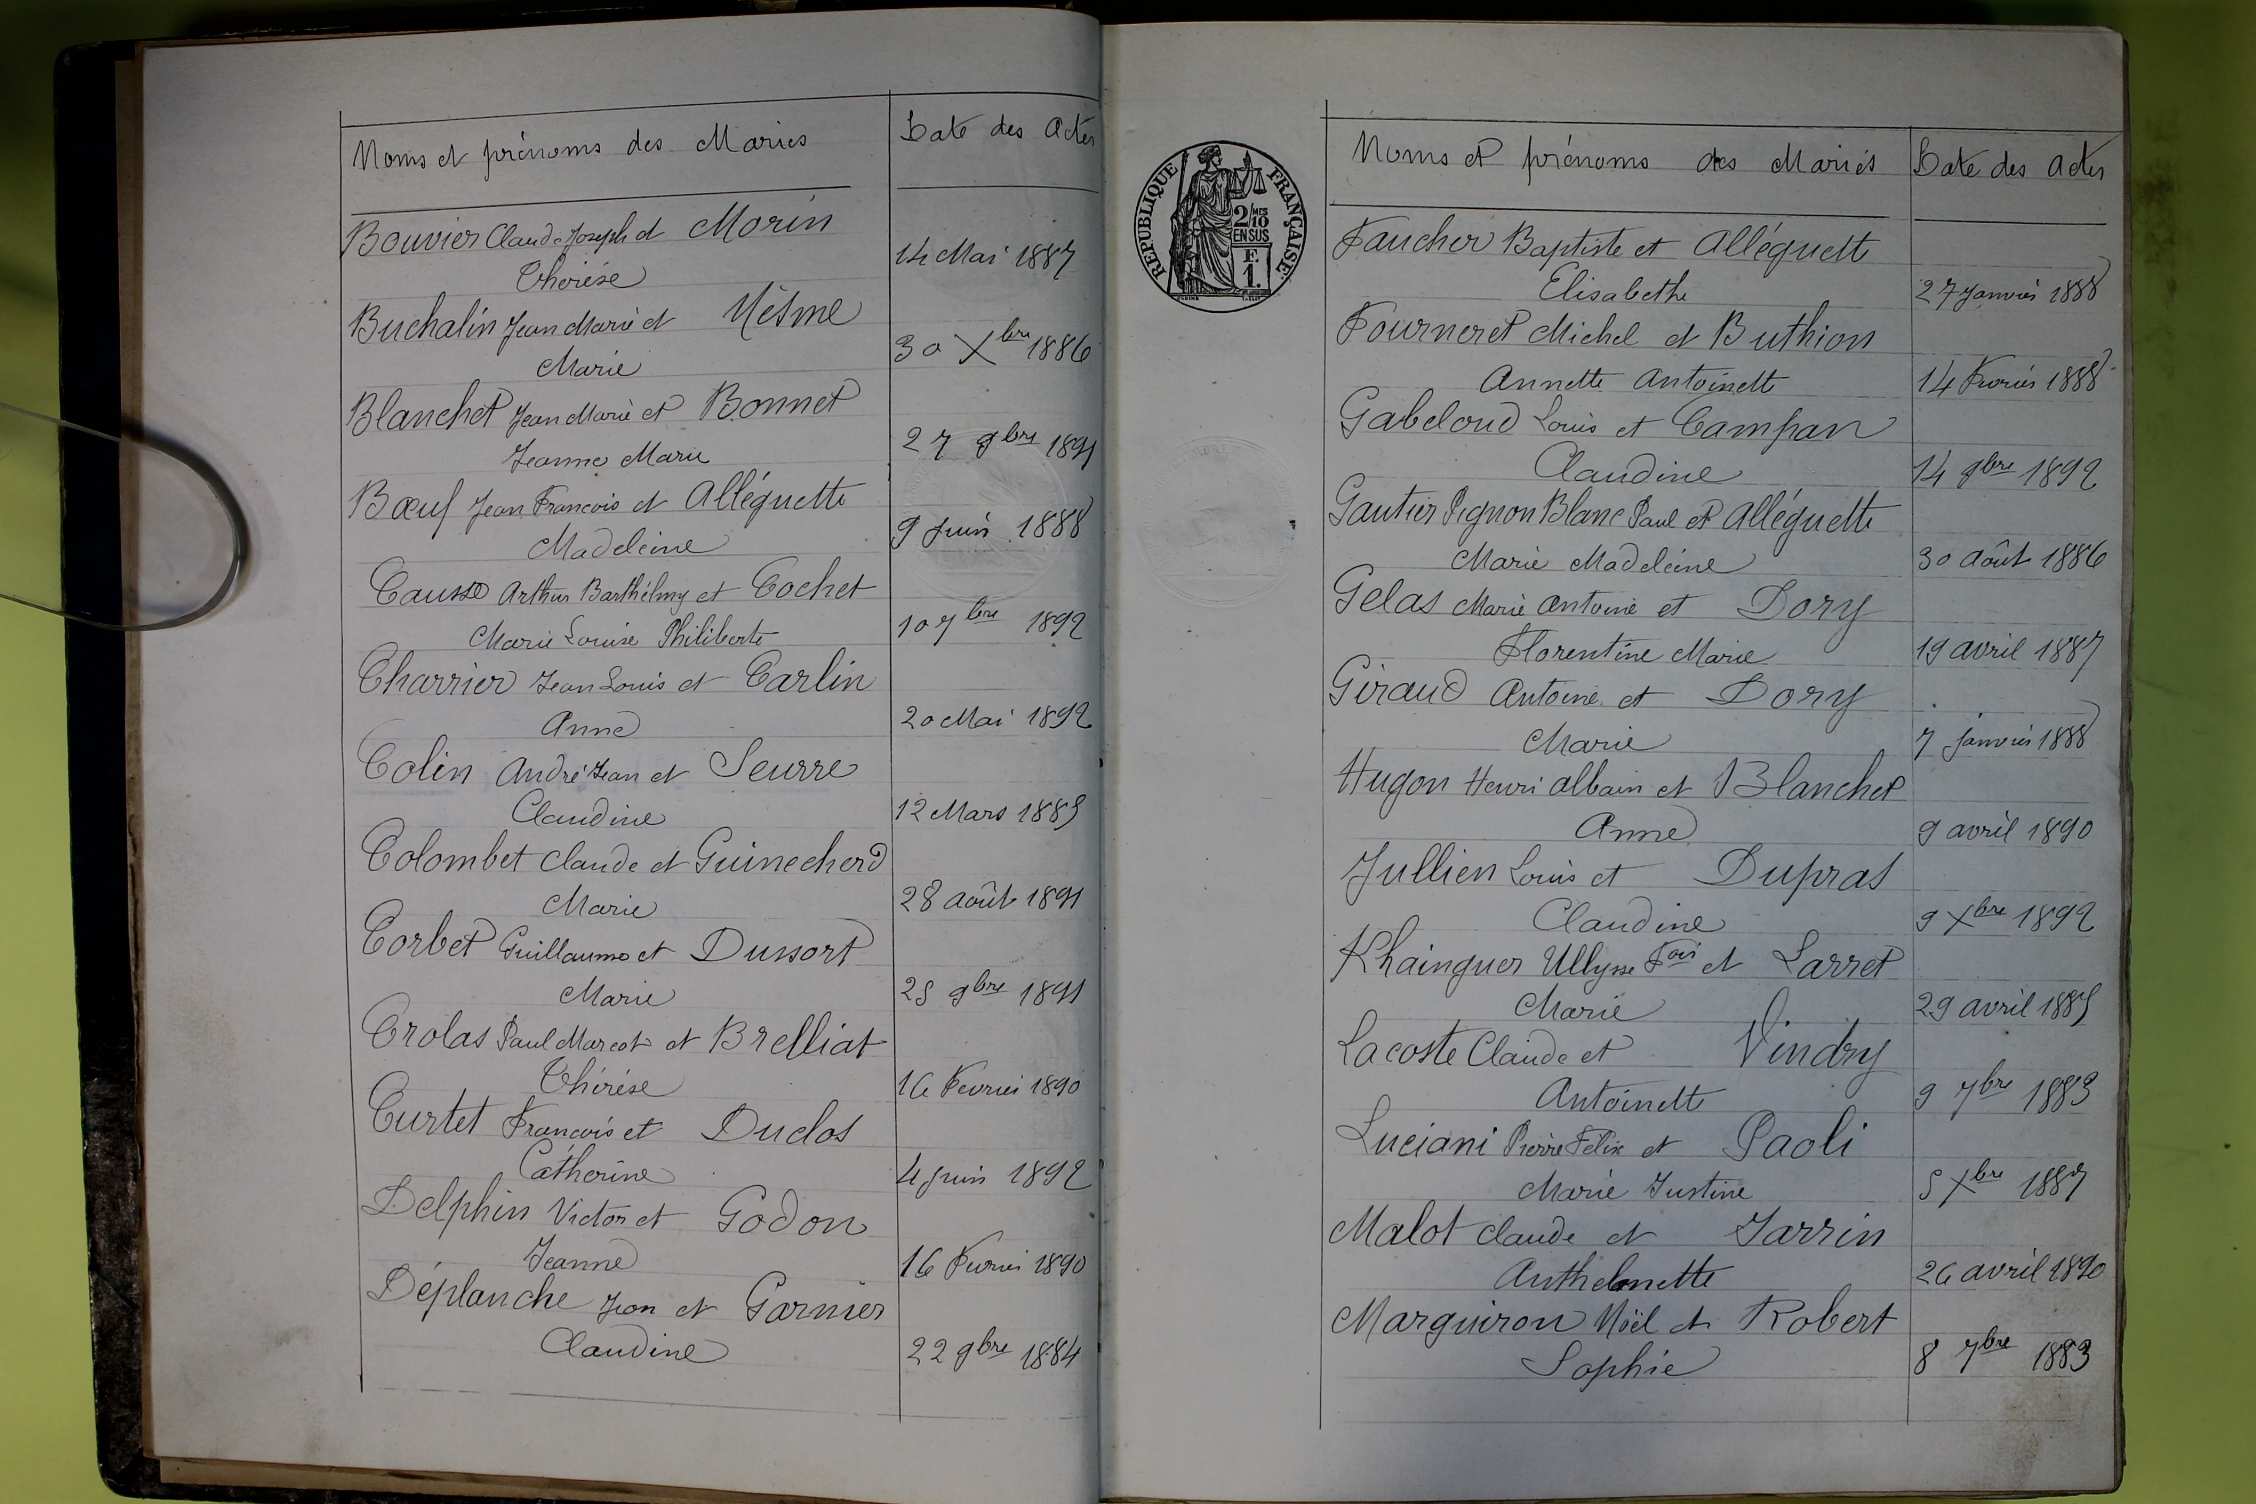 Noms et prénoms des Mariés Date des Actes
Bouvier Claude Joseph et Morin
Thérèse 14 Mai 1887
Buchalin Jean Marie et Mésme
Marie 30 Xbre 1886
Blanchet Jean Marie et Bonnet
Jeanne Marie 27 9bre 1891
Bœuf Jean François et Alléguette
Madeleine 9 Juin 1888
Causse Arthur Barthélmy et Cochet
Marie Louise Philiberte 10 7bre 1892
Charrier Jean Louis et Carlin
Anne 20 Mai 1892
Colin André Jean et Seurre
Claudine 12 Mars 1885
Colombet Claude et Guinecherd
Marie 28 août 1891
Corbet Guillaume et Dussort
Marie 25 9bre 1891
Crolas Paul Marcot et Brelliat
Thérèse 16 Fevrier 1890
Curtet François et Duclos
Catherine 4 Juin 1892
Delphin Victor et Godon
Jeanne 16 Fevrier 1890
Déplanche Jean et Garnier
Claudine 22 9bre 1884
REPUBLIQUE FRANÇAISE
2/MES
10
EN SUS
F.
1.
Noms et prénoms des Mariés Date des Actes
Faucher Baptiste et Alléguette
Elisabethe 27 Janvier 1888
Fourneret Michel et Buthion
Annette Antoinette 14 Fevrier 1888
Gabeloud Louis et Campan
Claudine 14 9bre 1892
Gautier Pignon Blanc Paul et Alléguette
Marie Madeleine 30 août 1886
Gelas Marie Antoine et Dory
Florentine Marie 19 avril 1887
Giraud Antoine et Dory
Marie 7 Janvier 1888
Hugon Henri Albain et Blanchet
Anne 9 avril 1890
Jullien Louis et Dupras
Claudine 9 Xbre 1892
Khainguer Ullysse Fois et Larret
Marie 29 avril 1885
Lacoste Claude et Vindry
Antoinette 9 7bre 1883
Luciani Pierre Felix et Paoli
Marie Justine 5 Xbre 1887
Malot Claude et Jarrin
Anthelmette 26 avril 1890
Marguiron Noël et Robert
Sophie 8 7bre 1883